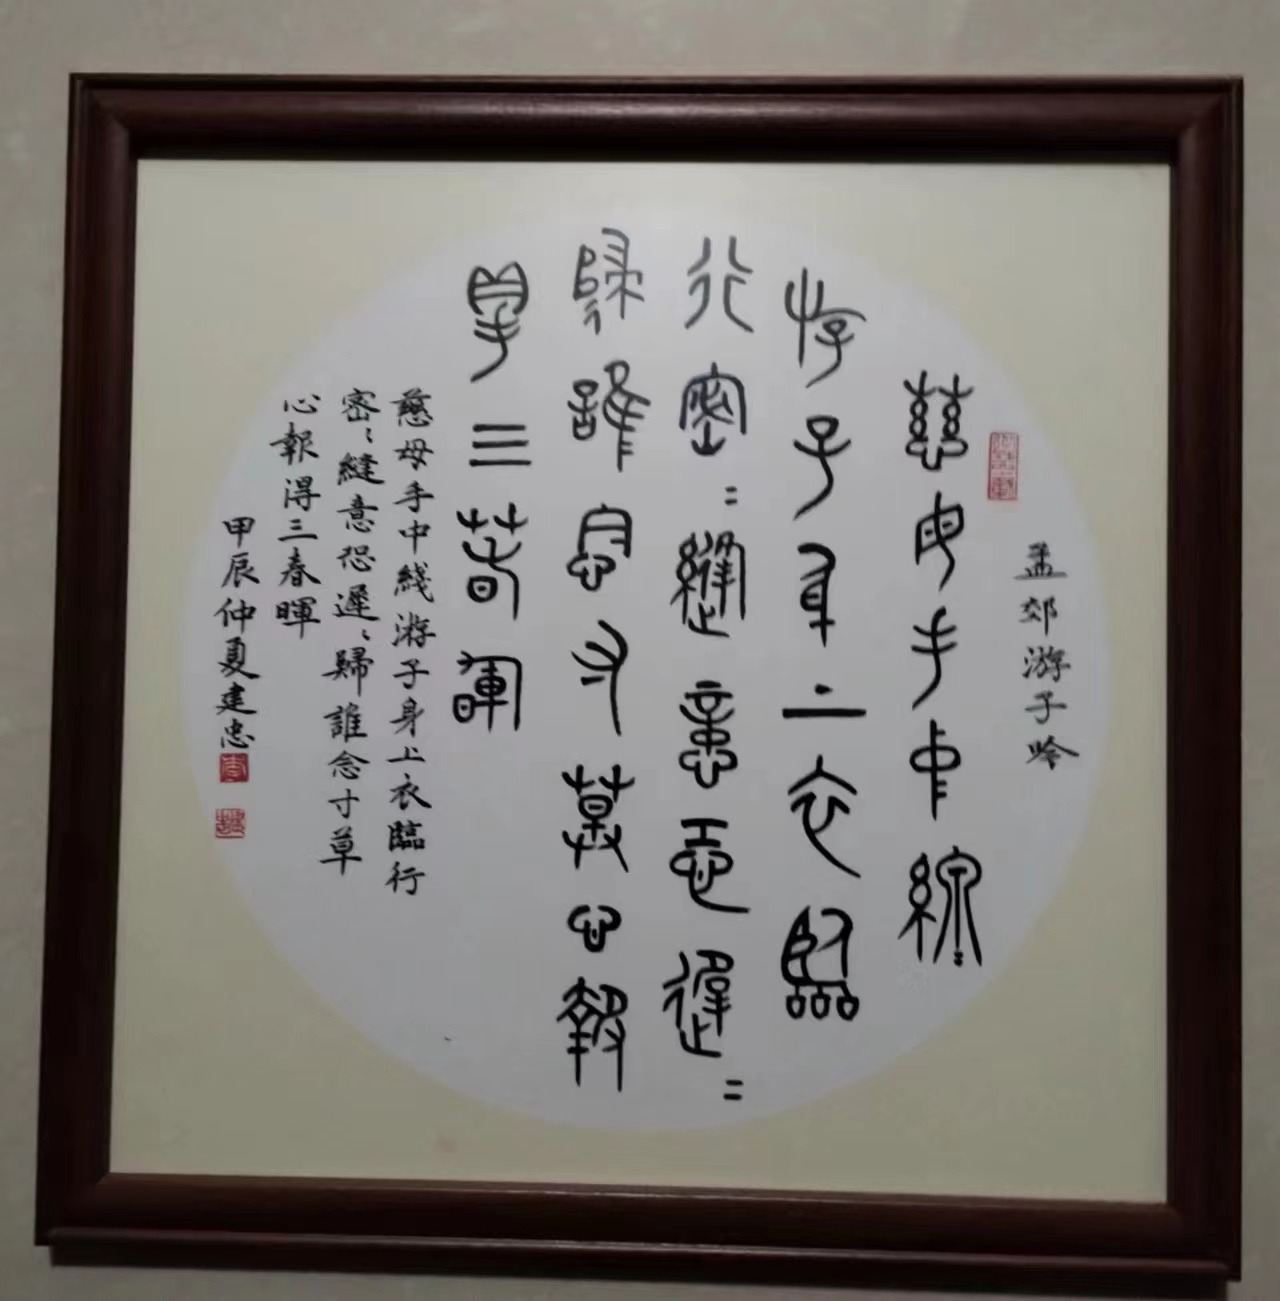 孟郊游子吟
慈母手中線
游子身上衣臨
行密=縫意恐遲=
歸誰念寸草心報
得三春暉
慈母手中綫游子身上衣臨行
密〻縫意恐遲〻歸誰念寸草
心報得三春暉
甲辰仲夏建忠